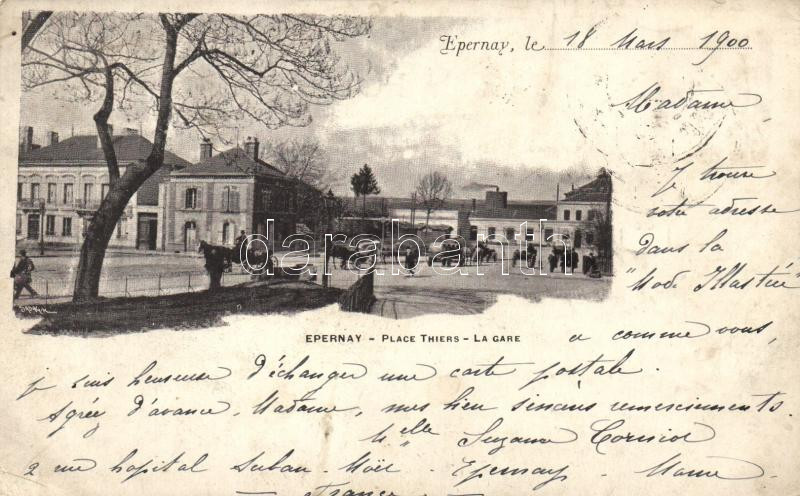 Epernay, le 18 Mars 1900
Madame
Je trouve
votre adresse
dans la
"Mode Illustrée"
et comme vous,
EPERNAY - PLACE THIERS - LA GARE
je suis heureuse d'échanger une carte postale.
Agréez d'avance, Madame, mes bien sincères remerciements.
Mlle Suzanne
2 rue hopital Auban-Moët - Epernay - Marne
- France -
darabanth.com